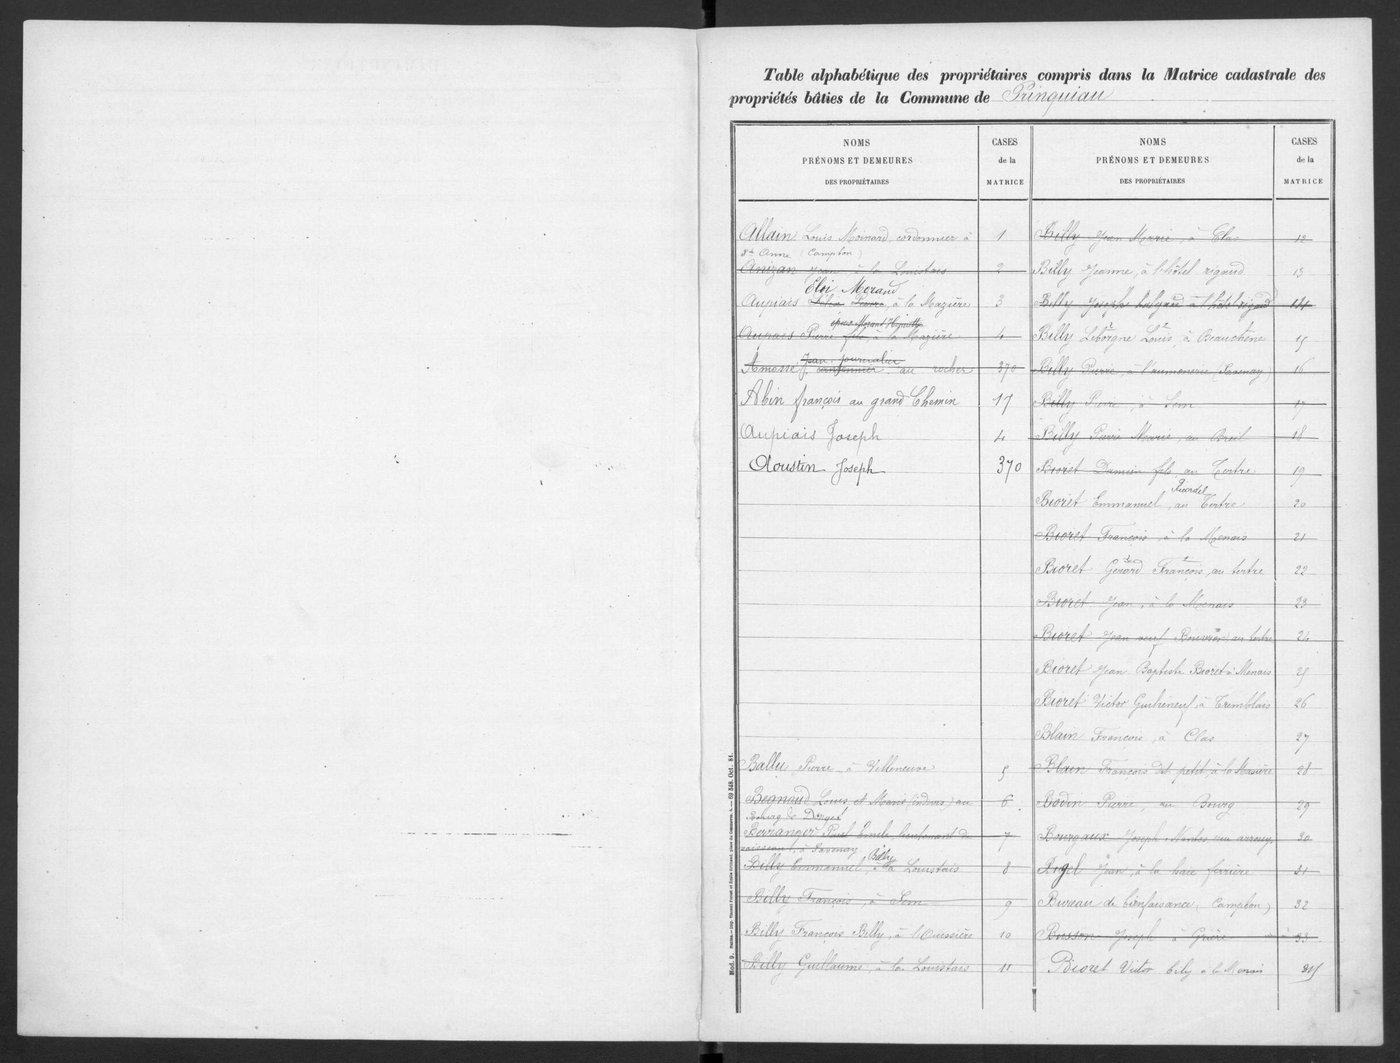 Table alphabétique des propriétaires compris dans la Matrice cadastrale des
propriétés bâties de la Commune de Prinquiau
NOMS
PRÉNOMS ET DEMEURES
DES PROPRIÉTAIRES
CASES
de la
MATRICE
Allain Louis Moinard, cordonnier à 1
Ste Anne (Campbon)
Anizan Jean à la Louistais 2
Eloi Morand
Aupiais à la Mazière 3
Aupiais Pierre fils, à la Mazière 4
Jean journalier
Amosse J. cantonnier au rocher 370
Abin françois au grand Chemin 17
Aupiais Joseph 4
Aoustin Joseph 370
Ballu Pierre, à Villeneuve 5
Begnaud Louis et Marie (indivis) au 6
Bourg de Donges
Berranger Paul Emile, lieutenant de 7
vaisseau, à Savenay
Billy Emmanuel, à la Louistais 8
Billy François, à Sem 9
Billy François Billy, à l'Ouessière 10
Billy Guillaume, à la Louistais 11
NOMS
PRÉNOMS ET DEMEURES
DES PROPRIÉTAIRES
CASES
de la
MATRICE
Billy Jean Marie, à Clas 12
Billy Jeanne, à l'hôtel rigaud 13
Billy Joseph à l'hôtel rigaud 14
Billy Leborgne Louis, à Beauchêne 15
Billy Pierre, à l'aumonerie (Savenay) 16
Billy Pierre, à Sem 17
Billy Pierre Marie, au Breil 18
Bioret Damien fils, au Tertre 19
Ricordel
Bioret Emmanuel, au Tertre 20
Bioret François, à la Menais 21
Bioret Gérard François, au tertre 22
Bioret Jean, à la Menais 23
Bioret Jean veuf Bouvron, au tertre 24
Bioret Jean Baptiste Bioret à Menais 25
Bioret Victor Guihéneuf, à Tremblais 26
Blain François, à Clas 27
Blain François dit petit, à la Masière 28
Bodin Pierre, au Bourg 29
Bourgaux Joseph, Nantes 30
Jean, à la haie ferrière 31
Bureau de bienfaisance (Campbon) 32
Busson Joseph à Grière 33
Bioret Victor à la Menais
Mod. 9.